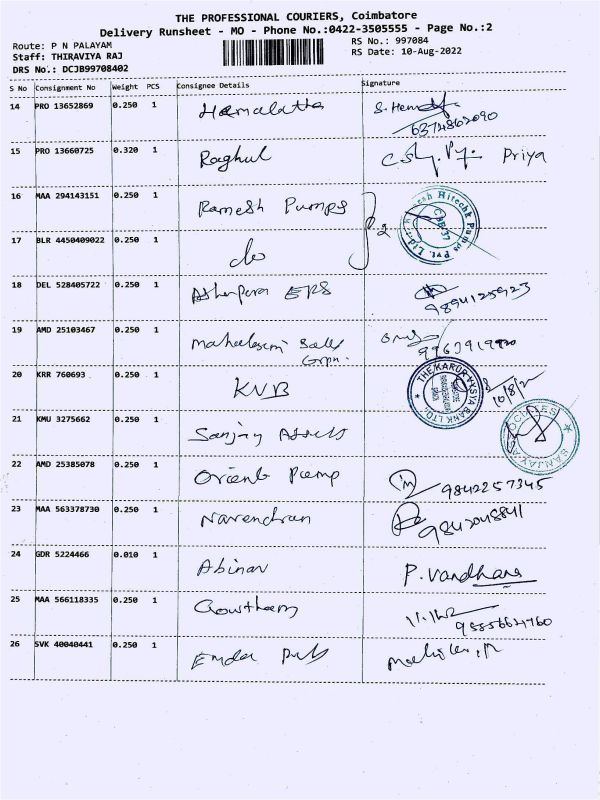 THE PROFESSIONAL COURIERS, Coimbatore
Delivery Runsheet - MO - Phone No.:0422-3505555 - Page No.:2
Route: P N PALAYAM
RS No.: 997084
Staff: THIRAVIYA RAJ
RS Date: 10-Aug-2022
DRS No.: DCJB99708402
S No Consignment No Weight PCS Consignee Details Signature
14 PRO 13652869 0.250 1 Hemalatha S. Hema
6374862090
15 PRO 13660725 0.320 1 Raghul Priya
16 MAA 294143151 0.250 1 Ramesh Pumps 2
17 BLR 4450409022 0.250 1 do
18 DEL 528405722 0.250 1
9894125923
19 AMD 25103467 0.250 1
20 KRR 760693 0.250 1 KVB 10/8/2
THE KARUR VYSYA BANK LTD.
21 KMU 3275662 0.250 1 Sanjay
22 AMD 25385078 0.250 1 Orient Pump 9842257345
23 MAA 563378730 0.250 1 Narendran
24 GDR 5224466 0.010 1 Abinav P. Vandhana
25 MAA 566118335 0.250 1 Gowtham
26 SVK 40040441 0.250 1